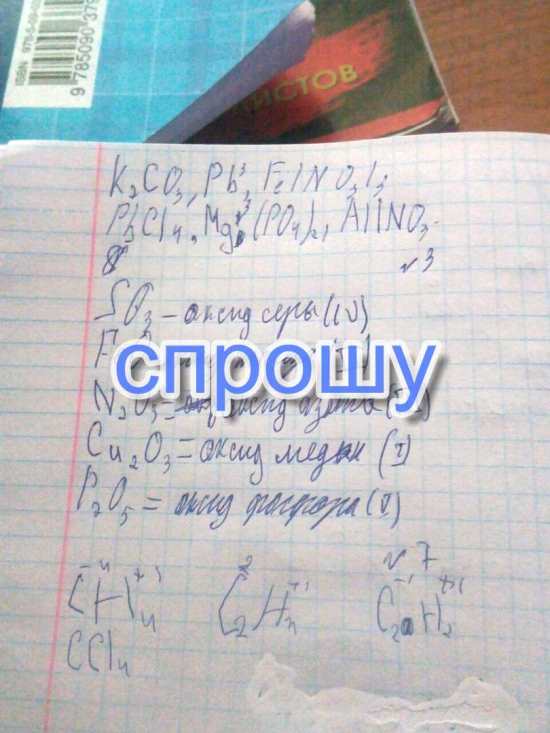 ISBN 978-5-09-0
9 785090 379
ИСТОВ
K₂CO₃, Pb
PbCl₄, Mg₃(PO₄)₂, Al(NO₃
√3
SO₃ - оксид серы (IV)
спрошу
N₂O₃ = оксид азота
Cu₂O₃ = оксид меди (I)
P₂O₅ = оксид фосфора (V)
√7
C⁻⁴H⁺¹₄ C₂H₄ C₂⁻¹H₂⁺¹
CCl₄